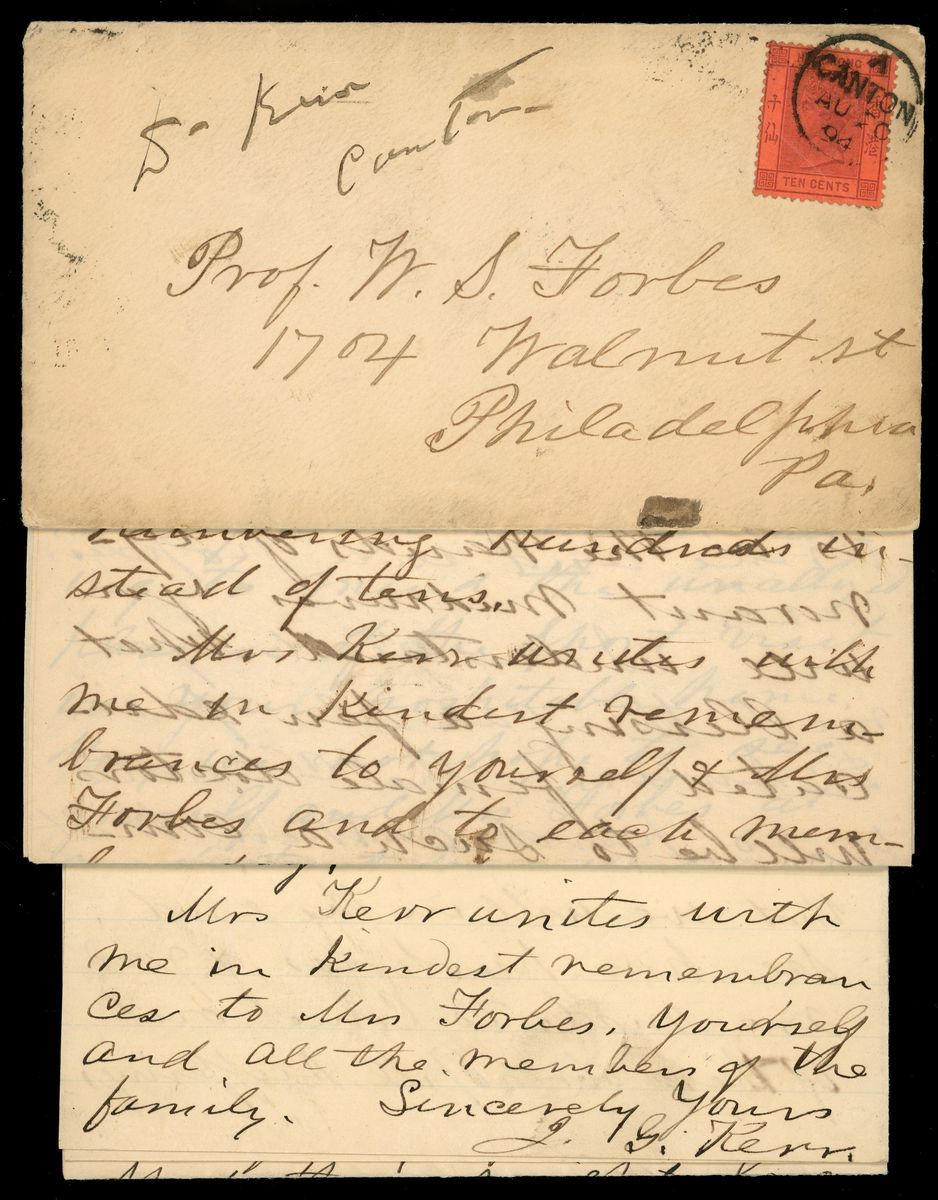 Dr Kerr
Canton
HONG KONG
TEN CENTS
A
CANTON
AU
94
Prof. W. S. Forbes
1704 Walnut st
Philadelphia
Pa.
numbering hundreds in-
stead of tens.
Mrs Kerr unites with
me in kindest remem-
brances to yourself & Mrs
Forbes and to each mem-
Mrs Kerr unites with
me in kindest remembran
ces to Mrs Forbes, yourself
and all the members of the
family. Sincerely Yours
J. G. Kerr.